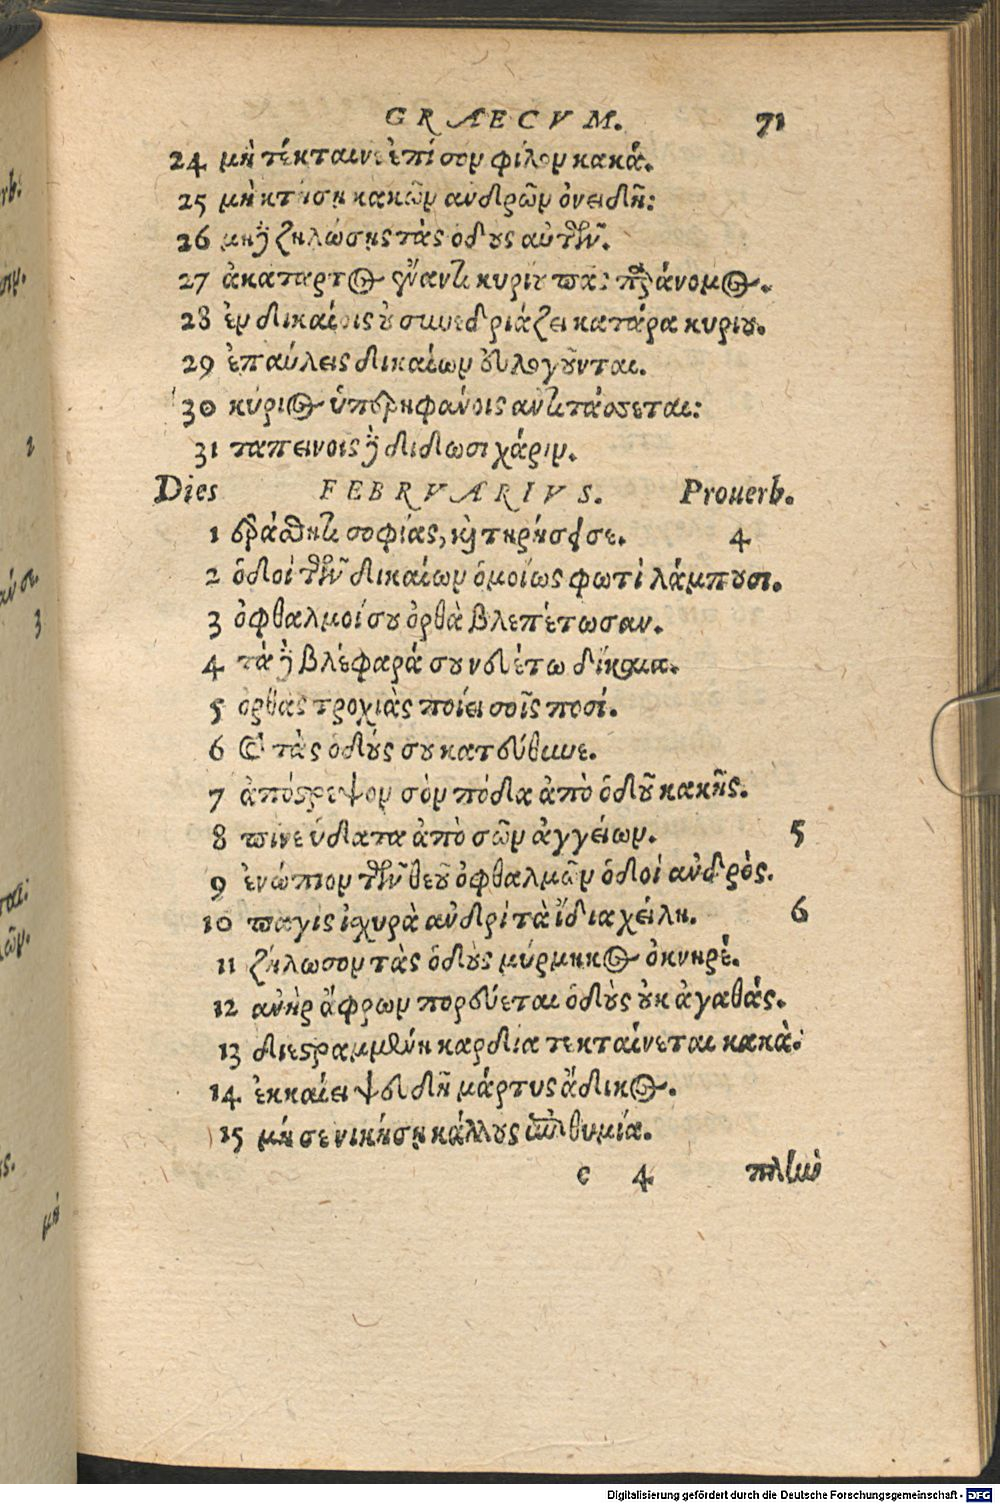 GRAECVM. 71
24 μὴ τέκταινε ἐπί σον φίλον κακά.
25 μὴ κτήσῃ κακῶν ανδρῶν ὀνείδη:
26 μηδὲ ζηλώσῃς τὰς ὁδους αὐτῶν.
27 ἀκαταρτος ἔναντι κυρίου πας παράνομος.
28 ἐν δικαίοις ου συνεδριάζει κατάρα κυριου.
29 ἐπαύλεις δικαίων ευλογοῦνται.
30 κύριος ὑπερηφάνοις αντιτάσσεται:
31 ταπεινοις δὲ διδωσι χάριν.
Dies FEBRVARIVS. Prouerb.
1 ἐράσθητι σοφίας, καὶ τηρήσει σε. 4
2 ὁδοὶ τῶν δικαίων ὁμοίως φωτὶ λάμπουσι.
3 ὀφθαλμοί σου ὀρθὰ βλεπέτωσαν.
4 τὰ δὲ βλέφαρά σου νευέτω δίκαια.
5 ὀρθὰς τροχιὰς ποίει σοῖς ποσί.
6 καὶ τὰς ὁδούς σου κατεύθυνε.
7 ἀπόστρεψον σὸν πόδα ἀπὸ ὁδοῦ κακῆς.
8 πῖνε ύδατα ἀπὸ σῶν ἀγγείων. 5
9 ἐνώπιον τῶν θεοῦ ὀφθαλμῶν ὁδοί ανδρὸς.
10 παγις ἰχυρὰ ανδρὶ τὰ ἴδια χείλη. 6
11 ζήλωσον τὰς ὁδοὺς μύρμηκος ὀκνηρέ.
12 ανὴρ ἄφρων πορεύεται ὁδοὺς ουκ ἀγαθάς.
13 διεστραμμένη καρδία τεκταίνεται κακὰ:
14 ἐκκαίει ψευδῆ μάρτυς ἄδικος.
15 μή σε νικήσῃ κάλλους ἐπιθυμία.
c 4 πλίω